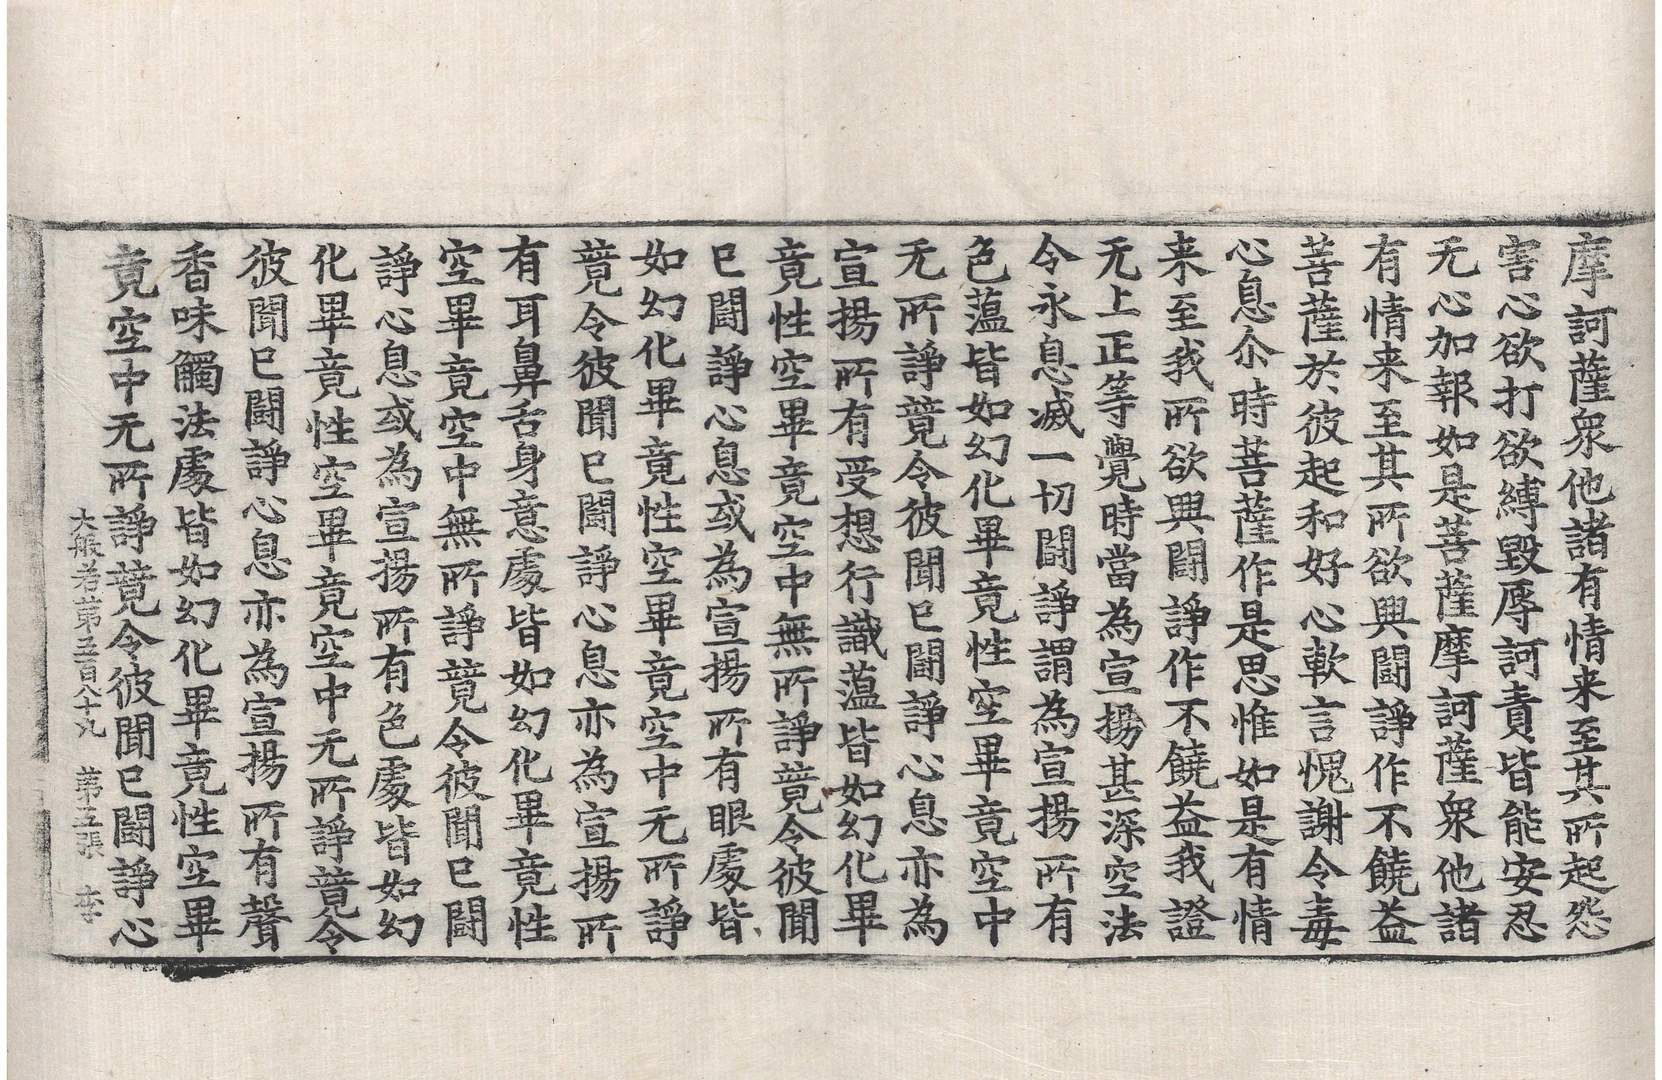 摩訶薩衆他諸有情来至其所起怨
害心欲打欲縛毀辱訶責皆能安忍
无心加報如是菩薩摩訶薩衆他諸
有情来至其所欲興闘諍作不饒益
菩薩於彼起和好心軟言愧謝令毒
心息尒時菩薩作是思惟如是有情
来至我所欲興闘諍作不饒益我證
无上正等覺時當為宣揚甚深空法
令永息滅一切闘諍謂為宣揚所有
色薀皆如幻化畢竟性空畢竟空中
无所諍競令彼聞已闘諍心息亦為
宣揚所有受想行識薀皆如幻化畢
竟性空畢竟空中無所諍競令彼聞
已闘諍心息或為宣揚所有眼處皆
如幻化畢竟性空畢竟空中无所諍
競令彼聞已闘諍心息亦為宣揚所
有耳鼻舌身意處皆如幻化畢竟性
空畢竟空中無所諍競令彼聞已闘
諍心息或為宣揚所有色處皆如幻
化畢竟性空畢竟空中无所諍競令
彼聞已闘諍心息亦為宣揚所有聲
香味觸法處皆如幻化畢竟性空畢
竟空中无所諍競令彼聞已闘諍心
大般若第五百八十九 第五張 李